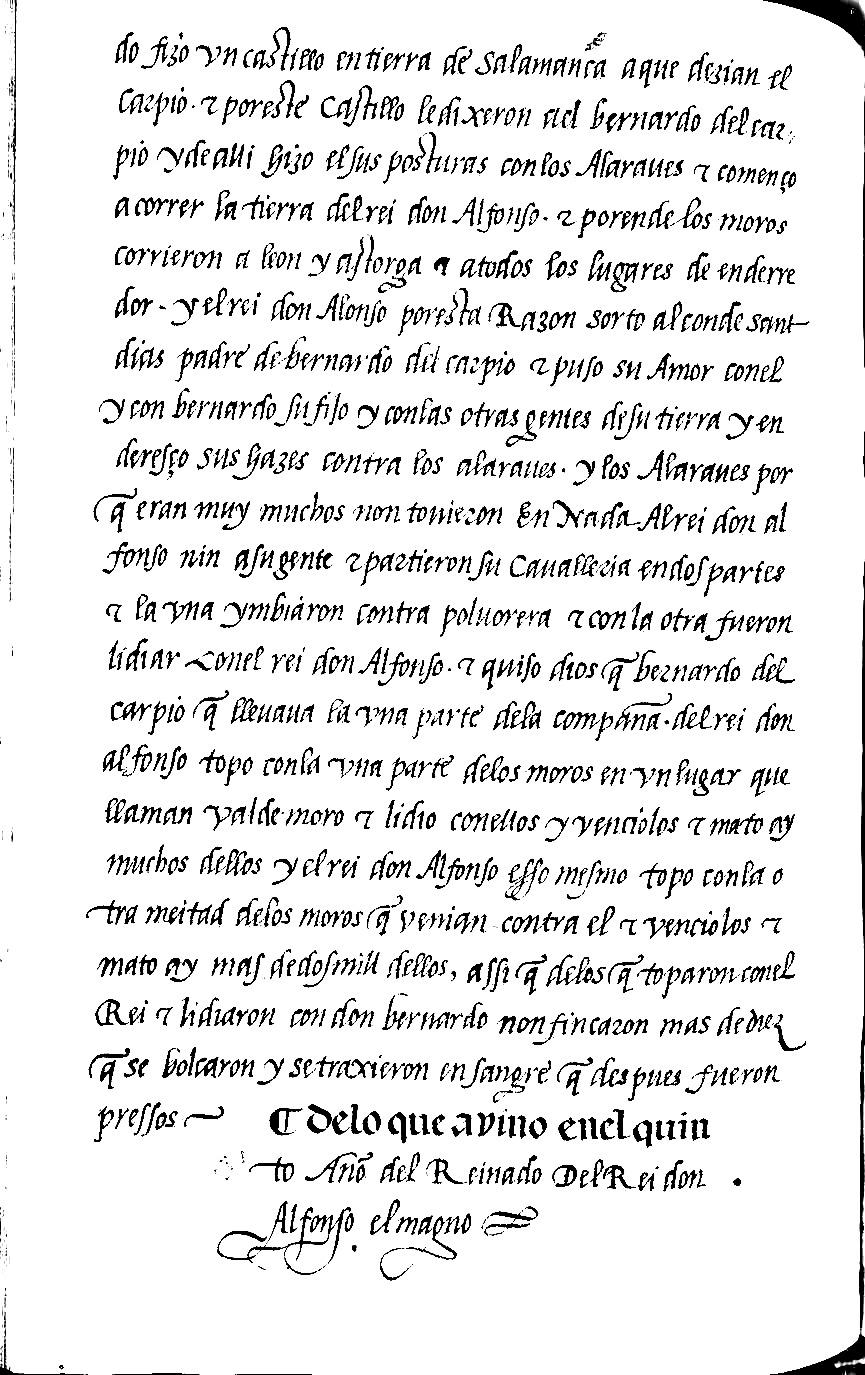 do fizo vn castillo en tierra de Salamanca a que dezian el
Carpio. τ por este Castillo le dixeron ael bernardo del car,
pio y de alli hizo el sus posturas con los Alaraues τ començo
a correr la tierra del rei don Alfonso. τ por ende los moros
corrieron a leon y astorga a atodos los lugares de enderre
dor. y el rei don Alonso por esta Razon sorto al conde sant
dias padre de bernardo del carpio τ puso su Amor conel
y con bernardo su fijo y con las otras gentes de su tierra y en
deresço sus hazes contra los alaraues. y los Alaraues por
q̃ eran muy muchos non touieron En Nada Al rei don al
fonso nin a su gente τ partieron su Caualleria en dos partes
τ la vna ymbiaron contra poluorera τ con la otra fueron
lidiar conel rei don Alfonso. τ quiso dios q̃ bernardo del
carpio q̃ lleuaua la vna parte dela compãna. del rei don
alfonso topo con la vna parte delos moros en vn lugar que
llaman valde moro τ lidio conellos y venciolos τ mato ay
muchos dellos y el rei don Alfonso esso mesmo topo con la o
tra meitad delos moros q̃ venian contra el τ venciolos τ
mato ay mas de dos mill dellos, assi q̃ delos q̃ toparon conel
Rei τ lidiaron con don bernardo non fincaron mas de diez
q̃ se bolcaron y se traxieron en sangre q̃ despues fueron
pressos
¶ Delo que avino enel quin
to Año del Reinado Del Rei don .
Alfonso el magno